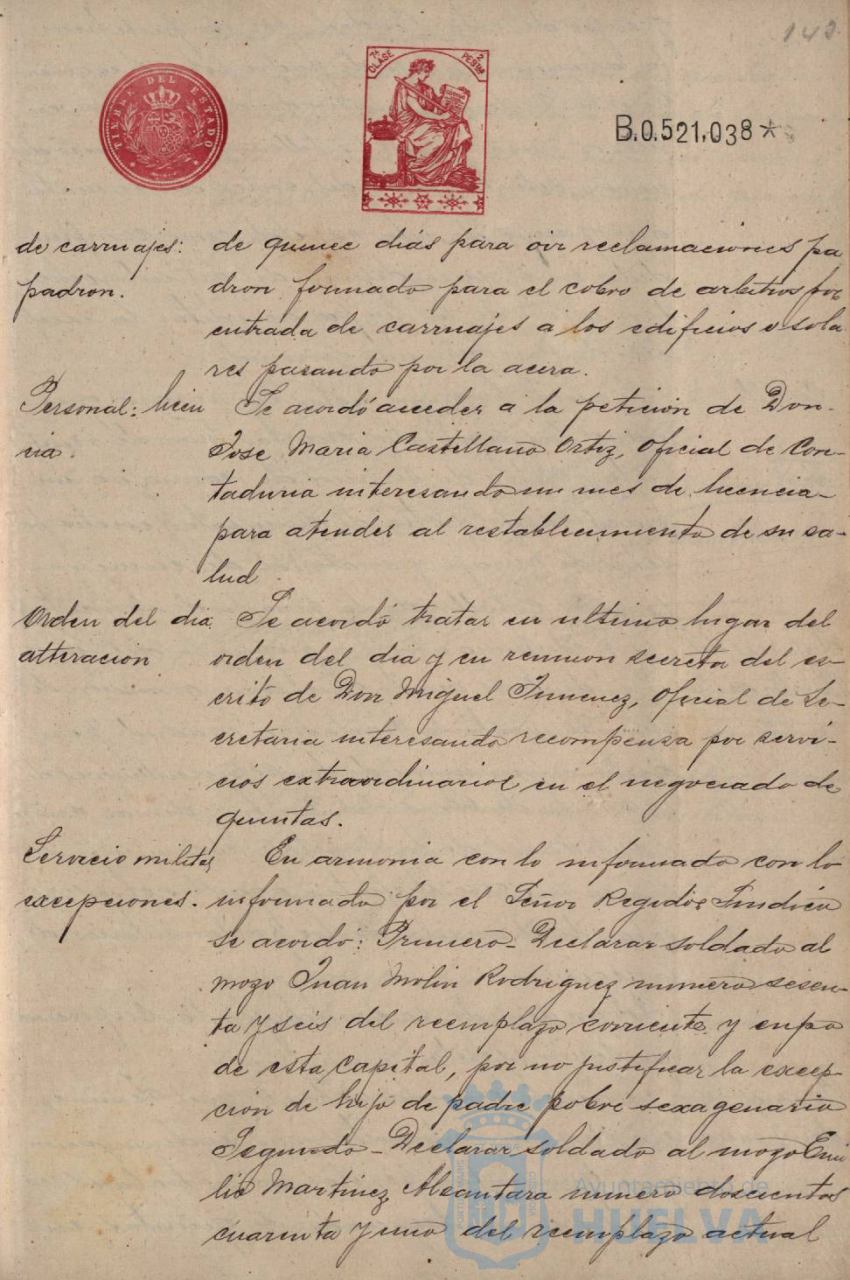 143
TIMBRE DEL ESTADO
7ª CLASE
2 PESETAS
B.0.521.038*
de carruajes:
padron.
de quince dias para oir reclamaciones pa
dron formado para el cobro de arbitrios por
entrada de carruajes a los edificios o sola
res pasando por la acera.
Personal: licen
cia.
Se acordó acceder a la petición de Don
Jose Maria Castellano Ortiz, oficial de Con-
taduria interesando un mes de licencia
para atender al restablecimiento de su sa-
lud
Orden del dia
alteracion
Se acordó tratar en ultimo lugar del
orden del dia y en reunion secreta del es-
crito de Don Miguel Jimenez, oficial de Se-
cretaria interesando recompensa por servi-
cios extraordinarios en el negociado de
quintas.
Servicio militar
excepciones.
En armonia con lo informado con lo
informado por el Señor Regidor Sindico
se acordó: Primero - Declarar soldado al
mozo Juan Molin Rodriguez numero sesen-
ta y seis del reemplazo corriente y cupo
de esta Capital, por no justificar la excep-
cion de hijo de padre pobre sexagenario
Segundo - Declarar soldado al mozo Emi
lio Martinez Alcantara numero doscientos
cuarenta y uno del reemplazo actual
Ayuntamiento de
HUELVA